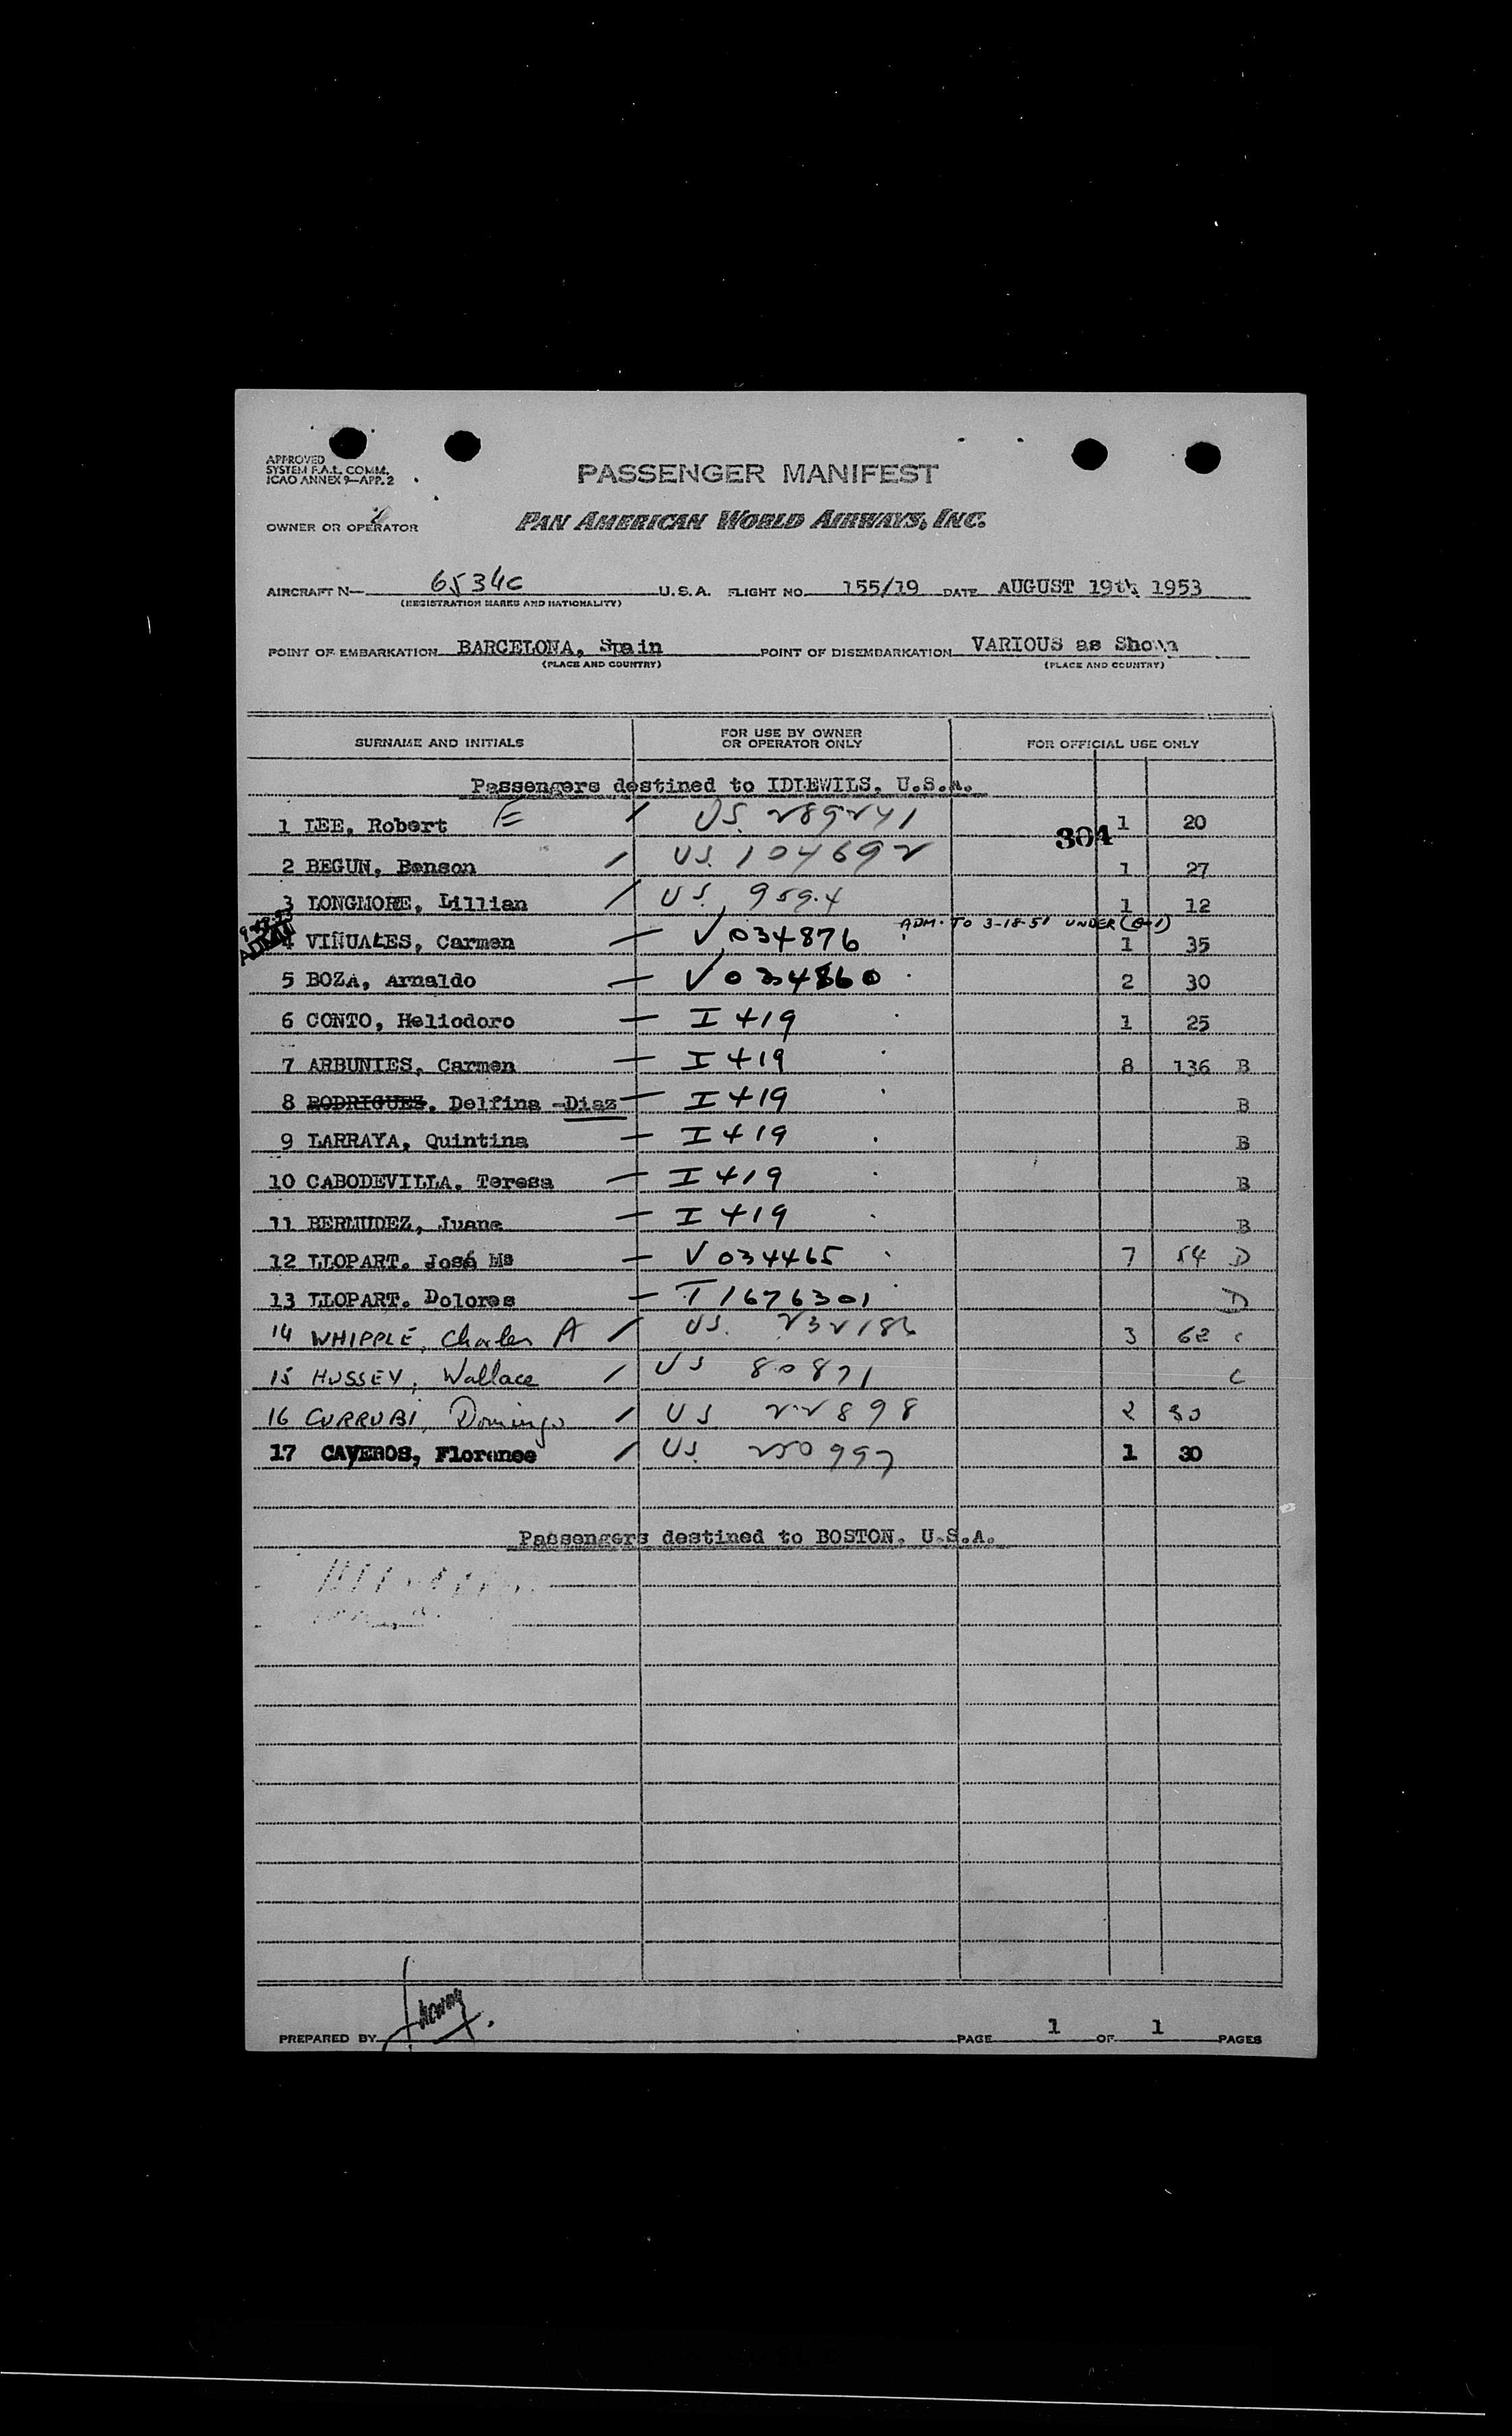 APPROVED
SYSTEM F.A.L. COMM.
ICAO ANNEX 9—APP. 2
PASSENGER MANIFEST
OWNER OR OPERATOR PAN AMERICAN WORLD AIRWAYS, INC.
AIRCRAFT N— 6534C U.S.A. FLIGHT NO. 155/19 DATE AUGUST 19th 1953
(REGISTRATION MARKS AND NATIONALITY)
POINT OF EMBARKATION BARCELONA, Spain POINT OF DISEMBARKATION VARIOUS as Shown
(PLACE AND COUNTRY) (PLACE AND COUNTRY)
SURNAME AND INITIALS FOR USE BY OWNER OR OPERATOR ONLY FOR OFFICIAL USE ONLY
Passengers destined to IDLEWILS, U.S.A.
1 LEE, Robert E / US. 289241 1 20
304
2 BEGUN, Benson / US. 104692 1 27
3 LONGMORE, Lillian / US. 1 12
ADM. TO 3-18-51 UNDER
4 VIÑUALES, Carmen — V 034876 1 35
5 BOZA, Arnaldo — V 034860 2 30
6 CONTO, Heliodoro — I 419 1 25
7 ARBUNIES, Carmen — I 419 8 136 B
8 RODRIGUEZ. Delfina -Diaz — I 419 B
9 LARRAYA, Quintina — I 419 B
10 CABODEVILLA. Teresa — I 419 B
11 BERMUDEZ, Juana — I 419 B
12 LLOPART. José Mª — V 034465 7 54 D
13 LLOPART. Dolores — T 1676301 D
14 WHIPPLE, Charles A / US. 232186 3 62 C
15 HUSSEY, Wallace / US 80871 C
16 CURRUBI, Domingo / US 22898 2 30
17 CAYEROS, Florence / US. 250997 1 30
Passengers destined to BOSTON. U.S.A.
PREPARED BY PAGE 1 OF 1 PAGES